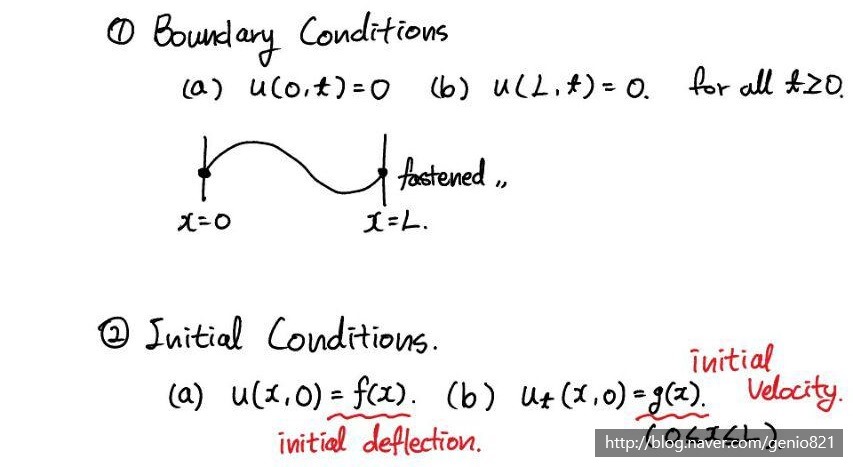 ① Boundary Conditions
(a) u(0,t)=0 (b) u(L,t)=0. for all t≥0.
fastened
x=0 x=L.
② Initial Conditions.
initial
(a) u(x,0)=f(x). (b) ut(x,0)=g(x). Velocity.
initial deflection. (0≤x≤L)
http://blog.naver.com/genio821